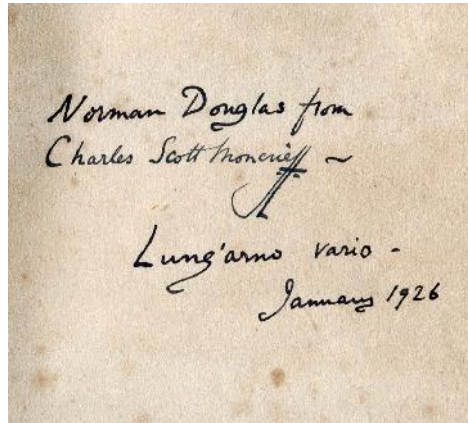 Norman Douglas from
Charles Scott Moncrieff ~
Lung'arno vario -
January 1926